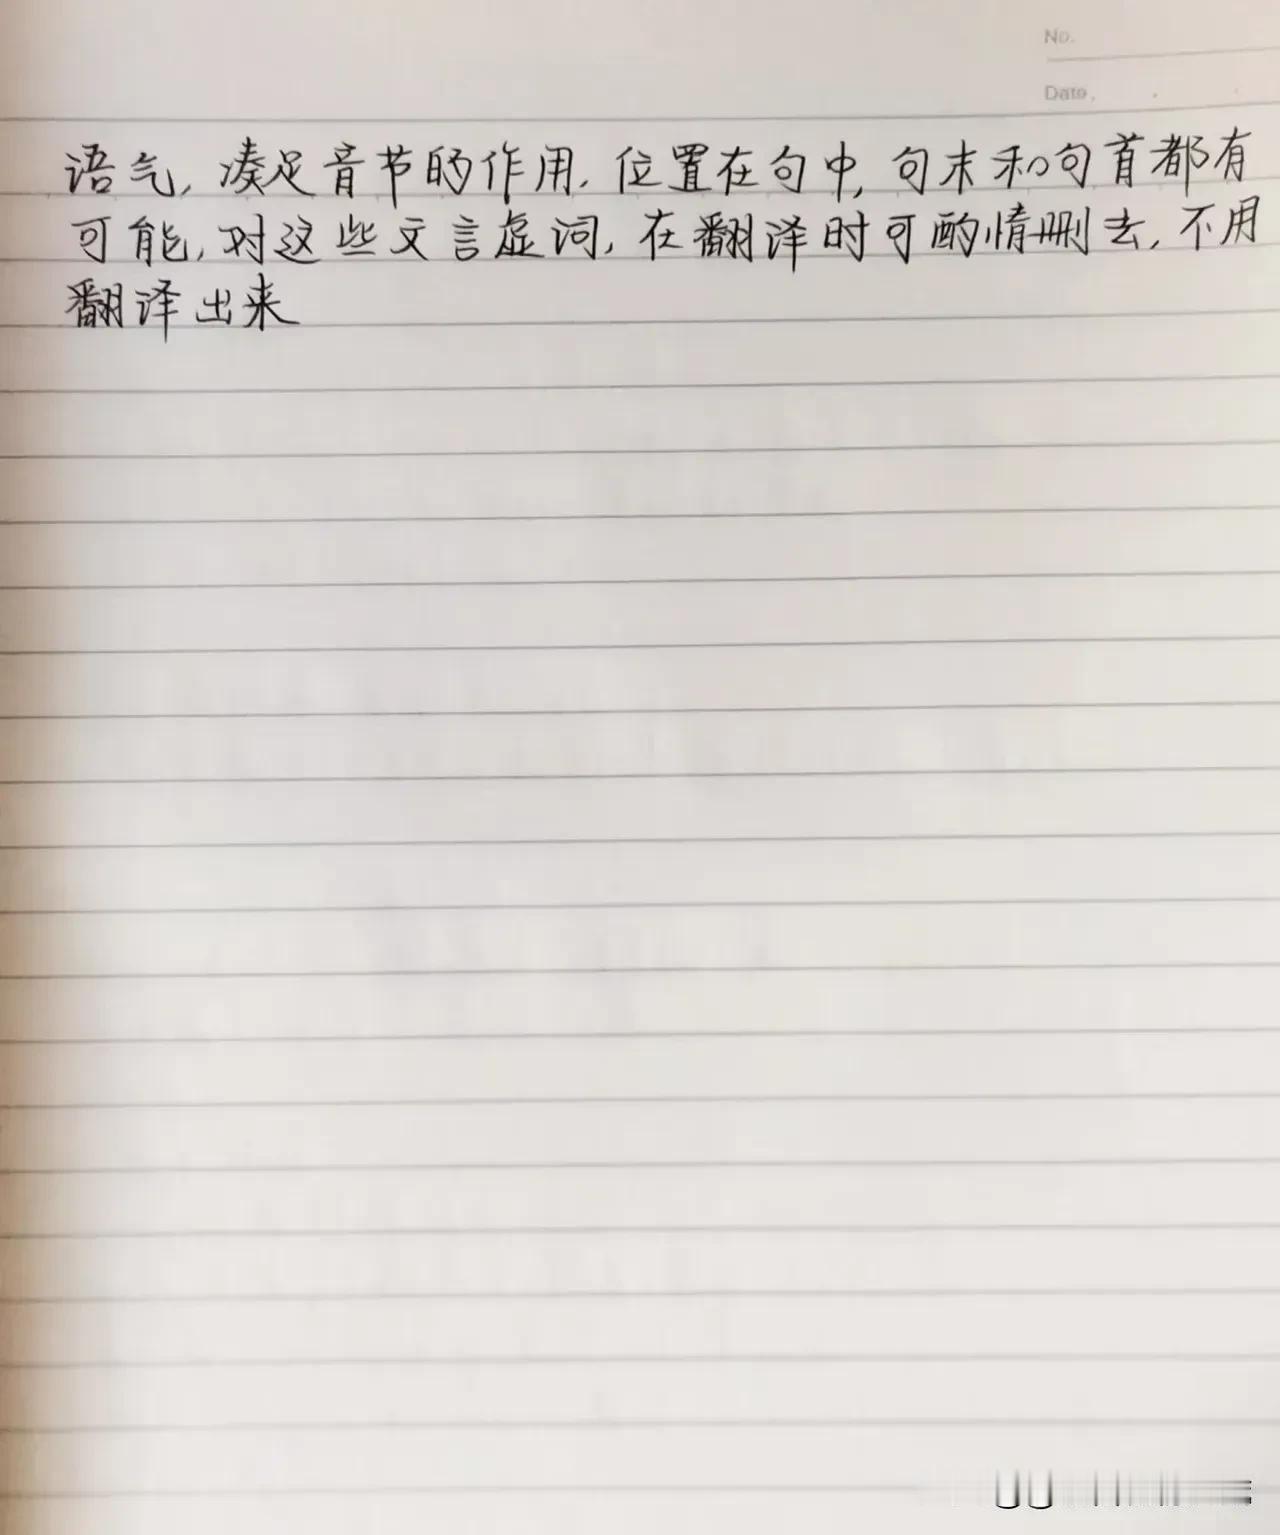 No.
Date.
语气,凑足音节的作用.位置在句中,句末和句首都有
可能,对这些文言虚词,在翻译时可酌情删去,不用
翻译出来